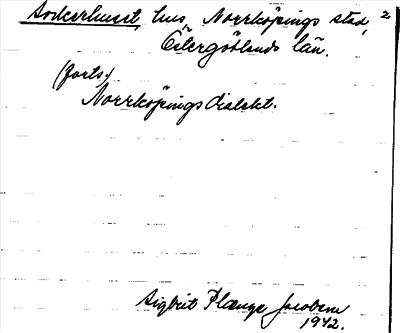 Sockerhuset, hus, Norrköpings stad, 2
Östergötlands län.
(forts.)
Norrköpingsdialekt.
Sigbrit Plænge Jacobson
1942.